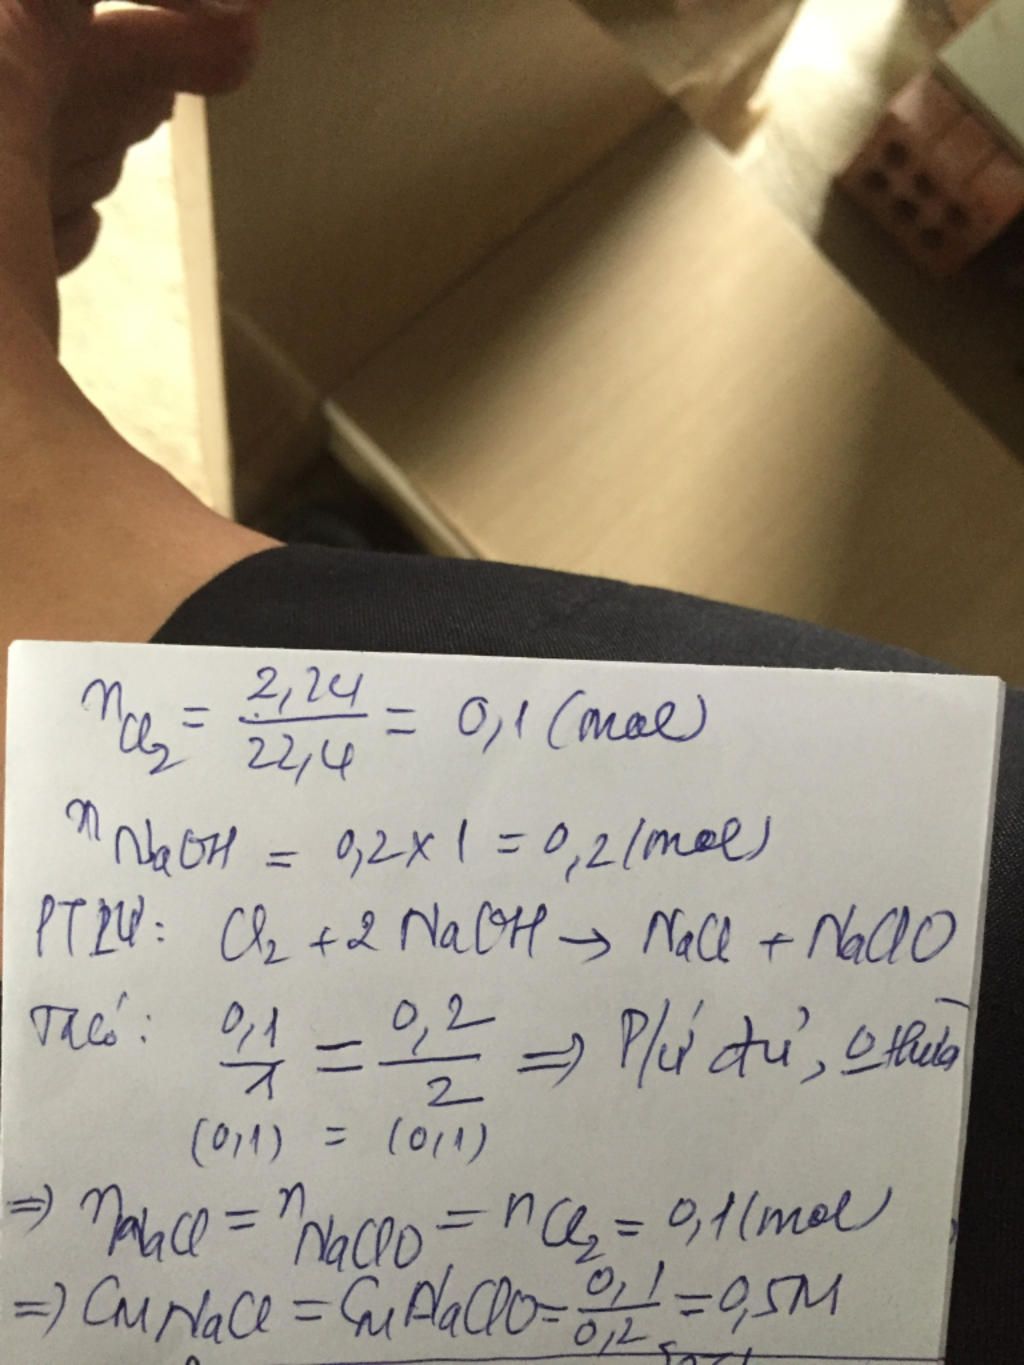 nCl₂ = 2,24/22,4 = 0,1 (mol)
nNaOH = 0,2 x 1 = 0,2 (mol)
PTPƯ: Cl₂ + 2 NaOH → NaCl + NaClO
Ta có: 0,1/1 = 0,2/2 => P/ứ đủ, 0 thừa
(0,1) = (0,1)
=> nNaCl = nNaClO = nCl₂ = 0,1 (mol)
=> CM NaCl = CM NaClO = 0,1/0,2 = 0,5M